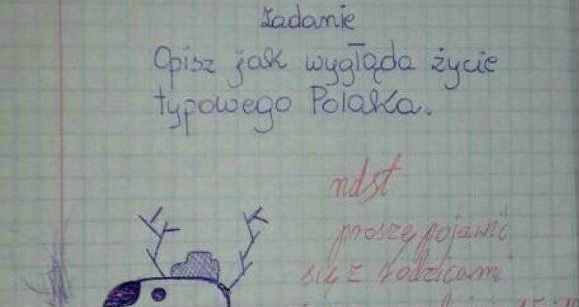 Zadanie
Opisz jak wygląda życie
typowego Polaka.
ndst
proszę pojawić
się z rodzicami